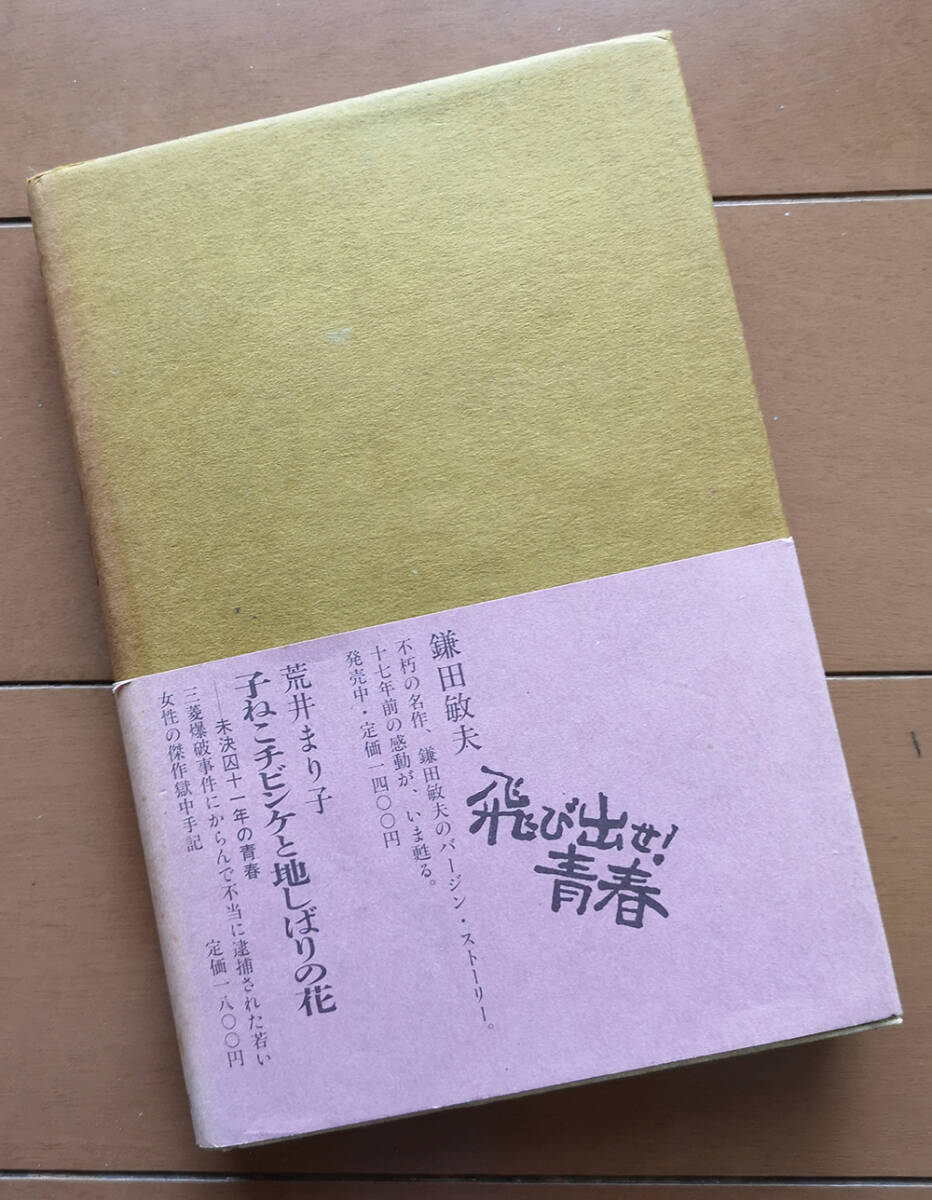 鎌田敏夫
飛び出せ!
青春
不朽の名作、鎌田敏夫のバージン・ストーリー。
十七年前の感動が、いま甦る。
発売中・定価一四〇〇円
荒井まり子
子ねこチビンケと地しばりの花
――未決囚十一年の青春
三菱爆破事件にからんで不当に逮捕された若い
女性の傑作獄中手記
定価一八〇〇円